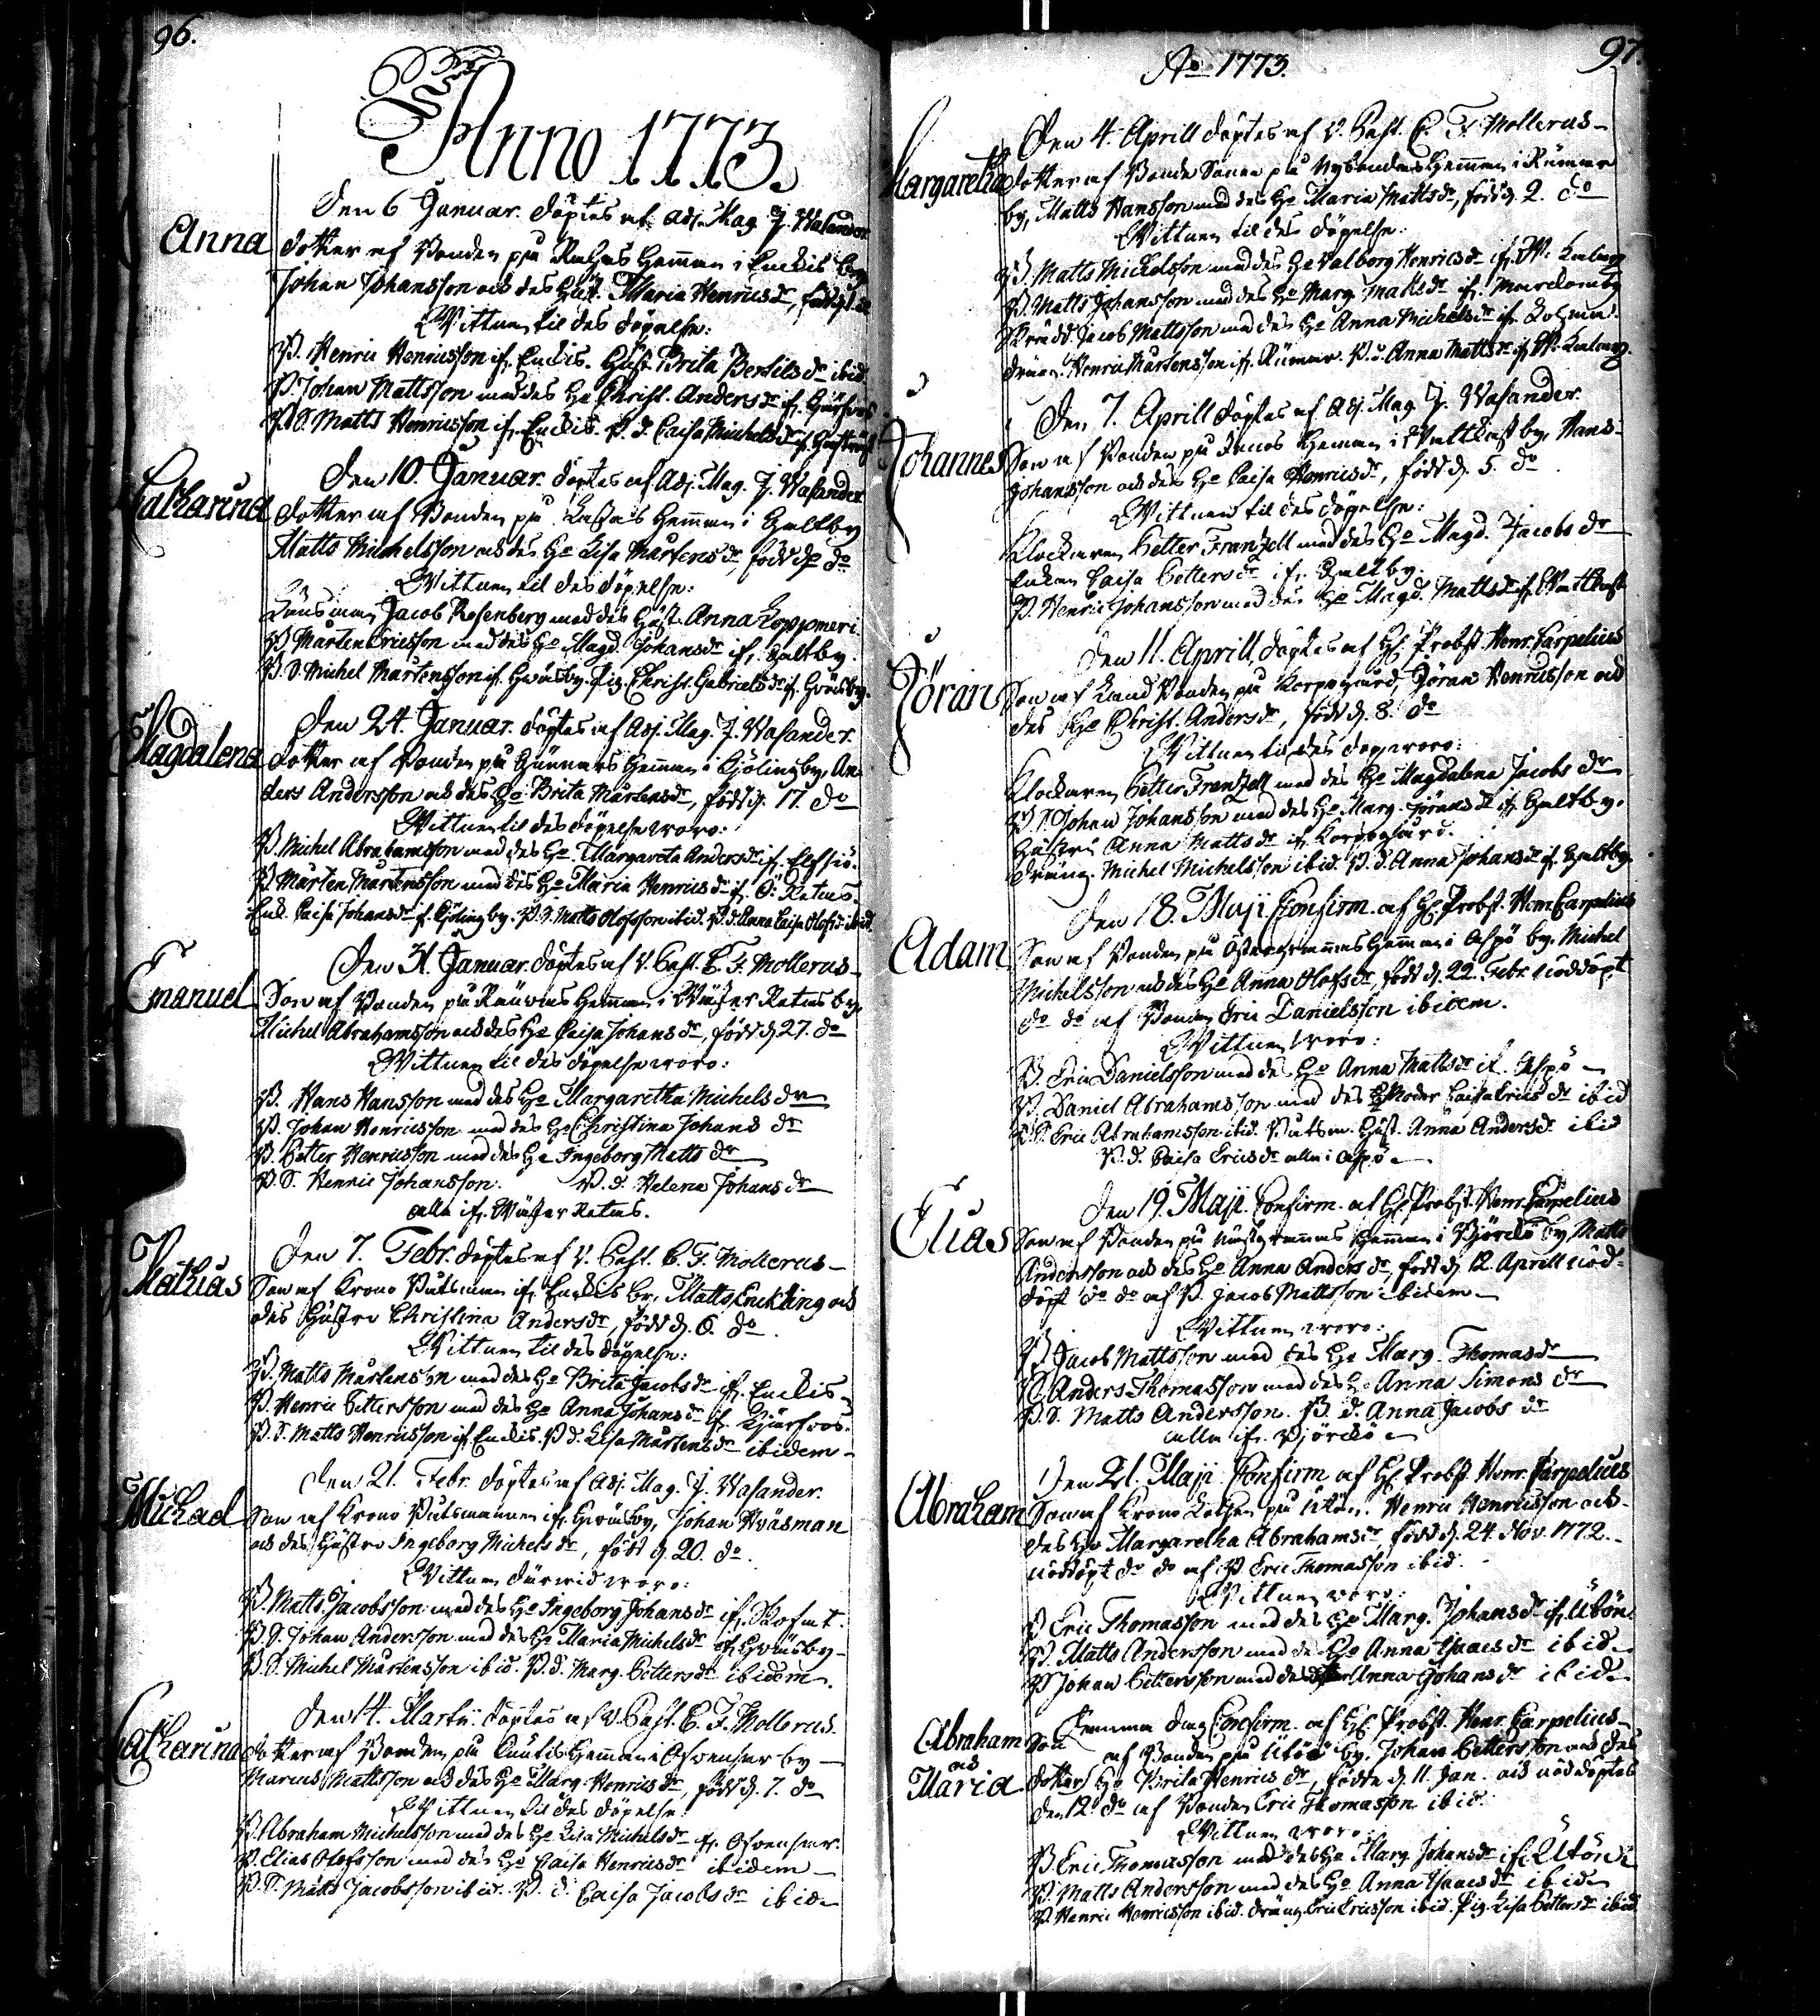 96.
Anno 1773.
Den 6 Januar. döptes af Adj. Mag. J. Wasander
Anna dotter af Bonden på Hemman i Enckis by
Johan Johansson och des Hust. Maria Henrics dr, född
Wittnen til des döpelse:
B. Henric Henricsson ifr. Enckis. Hust. Brita Bertils dr ibid.
B. Johan Mattsson med des Ho Christ. Anders dr ifr.
B. S. Matts Henricsson ifr. Enckis. B. d. Caisa Michels dr ifr.
Den 10. Januar. döptes af Adj. Mag. J. Wasander.
Catharina dotter af Bonden på Hemman i Galtby
Matts Michelsson och des Ho Lisa Mårtens dr, född do
Wittnen til des döpelse:
Länsman Jacob Rosenberg med des Hust. Anna Koppmeri
B. Mårten Ericsson med des Ho Magd. Johans dr ifr. Galtby.
B. S. Michel Mårtensson ifr. Hväsby. Pig. Christ. Gabriels dr ifr. Hväsby.
Den 24. Januar. döptes af Adj. Mag. J. Wasander.
Magdalena dotter af Bonden på Gunnars Hemman i Kjölingby, An-
ders Andersson och des Ho Brita Mårtens dr, född d. 17. do
Wittnen til des döpelse woro:
B. Michel Abrahamsson med des Ho Margareta Anders dr ifr. Elfsjö.
B. Mårten Mårtensson med des Ho Maria Henrics dr ifr. Ö. Retais.
Enck. Caisa Johans dr ifr. Kjölingby. B. S. Matts Olofsson ibid. B. d. Anna Caisa Olofs dr ibid.
Den 31. Januar. döptes af V. Past. C. F. Mollerus
Emanuel Son af Bonden på Hemman i Wäster Retais by,
Michel Abrahamsson och des Ho Caisa Johans dr, född d. 27. do
Wittnen til des döpelse woro:
B. Hans Hansson med des Ho Margaretha Michels dr
B. Johan Henricsson med des Ho Christina Johans dr
B. Petter Henricsson med des Ho Ingeborg Matts dr
B. S. Henric Johansson. B. d. Helena Johans dr
alla ifr. Wäster Retais.
Den 7. Febr. döptes af V. Past. C. F. Mollerus
Mathias Son af Krono Båtsman ifr. Enckis by, Matts Enckling och
des Hustru Christina Anders dr, född d. 6. do
Wittnen til des döpelse:
B. Matts Mårtensson med des Ho Brita Jacobs dr ifr. Enckis
B. Henric Pettersson med des Ho Anna Johans dr ifr.
B. S. Matts Henricsson ifr. Enckis. B. d. Lisa Mårtens dr ibidem
Den 21. Febr. döptes af Adj. Mag. J. Wasander.
Michael Son af Krono Båtsmannen ifr. Hväsby, Johan Hväsman
och des Hustru Ingeborg Michels dr, född d. 20. do.
Wittnen därwid woro:
B. Matts Jacobsson med des Ho Ingeborg Johans dr ifr.
B. S. Johan Andersson med des Ho Maria Michels dr ifr. Hväsby
B. S. Michel Mårtensson ibid. B. d. Marg. Petters dr ibidem.
Den 14. Martii. döptes af V. Past. C. F. Mollerus.
Catharina dotter af Bonden på Knutis Hemman i Ofvensar by
Marcus Mattsson och des Ho Marg. Henrics dr, född d. 7. do
Wittnen til des döpelse:
B. Abraham Michelsson med des Ho Lisa Michels dr ifr. Ofvensar.
B. Elias Olofsson med des Ho Caisa Henrics dr ibidem
B. S. Matts Jacobsson ibid. B. d. Caisa Jacobs dr ibid.
97.
Ao 1773.
Den 4. Aprill döptes af V. Past. C. F. Mollerus
Margaretha dotter af Bonde Sonen på Nybondas Hemman i Rumar
by, Matts Hansson med des Ho Maria Matts dr, född d. 2. do
Wittnen til des döpelse:
B. Matts Mickelsson med des Ho Valborg Henrics dr ifr. W.
B. Matts Johansson med des Ho Marg. Matts dr ifr.
Skrädd. Jacob Mattsson med des Ho Anna Michels dr ifr.
Dräng. Henric Mårtensson ifr. Rumar. B. d. Anna Matts dr ifr. W.
Den 7. Aprill döptes af Adj. Mag. J. Wasander.
Johannes Son af Bonden på Hemman i Wattkast by, Hans
Johansson och des Ho Caisa Henrics dr, född d. 5. do
Wittnen til des döpelse:
Klockaren Petter Frantzell med des Ho Magd. Jacobs dr
Enkan Caisa Petters dr ifr. Galtby.
B. Henric Johansson med des Ho Magd. Matts dr ifr. Wattkast
Den 11. Aprill, döptes af H. Probst. Henr. Carpelius
Jöran Son af Land Bonden på Korpogård, Jöran Henricsson och
des Ho Christ. Anders dr, född d. 8. do
Wittnen til des dop woro:
Klockaren Petter Frantzell med des Ho Magdalena Jacobs dr
B. S. Johan Johansson med des Ho Marg. Jörans dr ifr. Galtby.
Hustru Anna Matts dr ifr. Korpogård.
Dräng. Michel Michelsson ibid. B. d. Anna Johans dr ifr. Galtby.
Den 18. Maji Confirm. af H. Probst. Henr. Carpelius
Adam Son af Bonden på Östergrannas Hemman i Aspö by, Michel
Michelsson och des Ho Anna Olofs dr, född d. 22. Febr. nöddöpt
do do af Bonden Eric Danielsson ibidem.
Wittnen woro:
B. Eric Danielsson med des Ho Anna Matts dr if. Aspö
B. Daniel Abrahamsson med des Moder Caisa Erics dr ibid
B. S. Eric Abrahamsson ibid. Båtsm. Hust. Anna Anders dr ibid
B. d. Caisa Erics dr alla i Aspö
Den 19. Maji Confirm. af H. Probst. Henr. Carpelius
Elias Son af Bonden på Hemman i Björckö by, Matts
Andersson och des Ho Anna Anders dr, född d. 12. Aprill nöd-
döpt do do af B. Jacob Mattsson ibidem
Wittnen woro:
B. Jacob Mattsson med des Ho Marg. Thomas dr
B. Anders Thomasson med des Ho Anna Simons dr
B. S. Matts Andersson. B. d. Anna Jacobs dr
alla ifr. Björckö
Den 21. Maji Confirm af H. Probst. Henr. Carpelius
Abraham Son af Krono på Utön. Henric Henricsson och
des Ho Margaretha Abrahams dr, född d. 24. Nov. 1772.
nöddöpt do do af B. Eric Thomasson ibid.
Wittnen woro:
B. Eric Thomasson med des Ho Marg. Johans dr ifr. Utön.
B. Matts Andersson med des Ho Anna Isaacs dr ibid.
B. Johan Pettersson med des Anna Johans dr ibid.
Samma dag Confirm. af H. Probst. Henr. Carpelius
Abraham och Maria Son
dotter af Bonden på Utö by. Johan Pettersson och des
Ho Brita Henrics dr, födde d. 11. Jan. och nöddöptes
den 12. do af Bonden Eric Thomasson ibid.
Wittnen woro:
B. Eric Thomasson med des Ho Marg. Johans dr ifr. Utön
B. Matts Andersson med des Ho Anna Isaacs dr ibid.
B. Henric Henricsson ibid. dräng. Eric Ericsson ibid. Pig. Lisa Petters dr ibid.